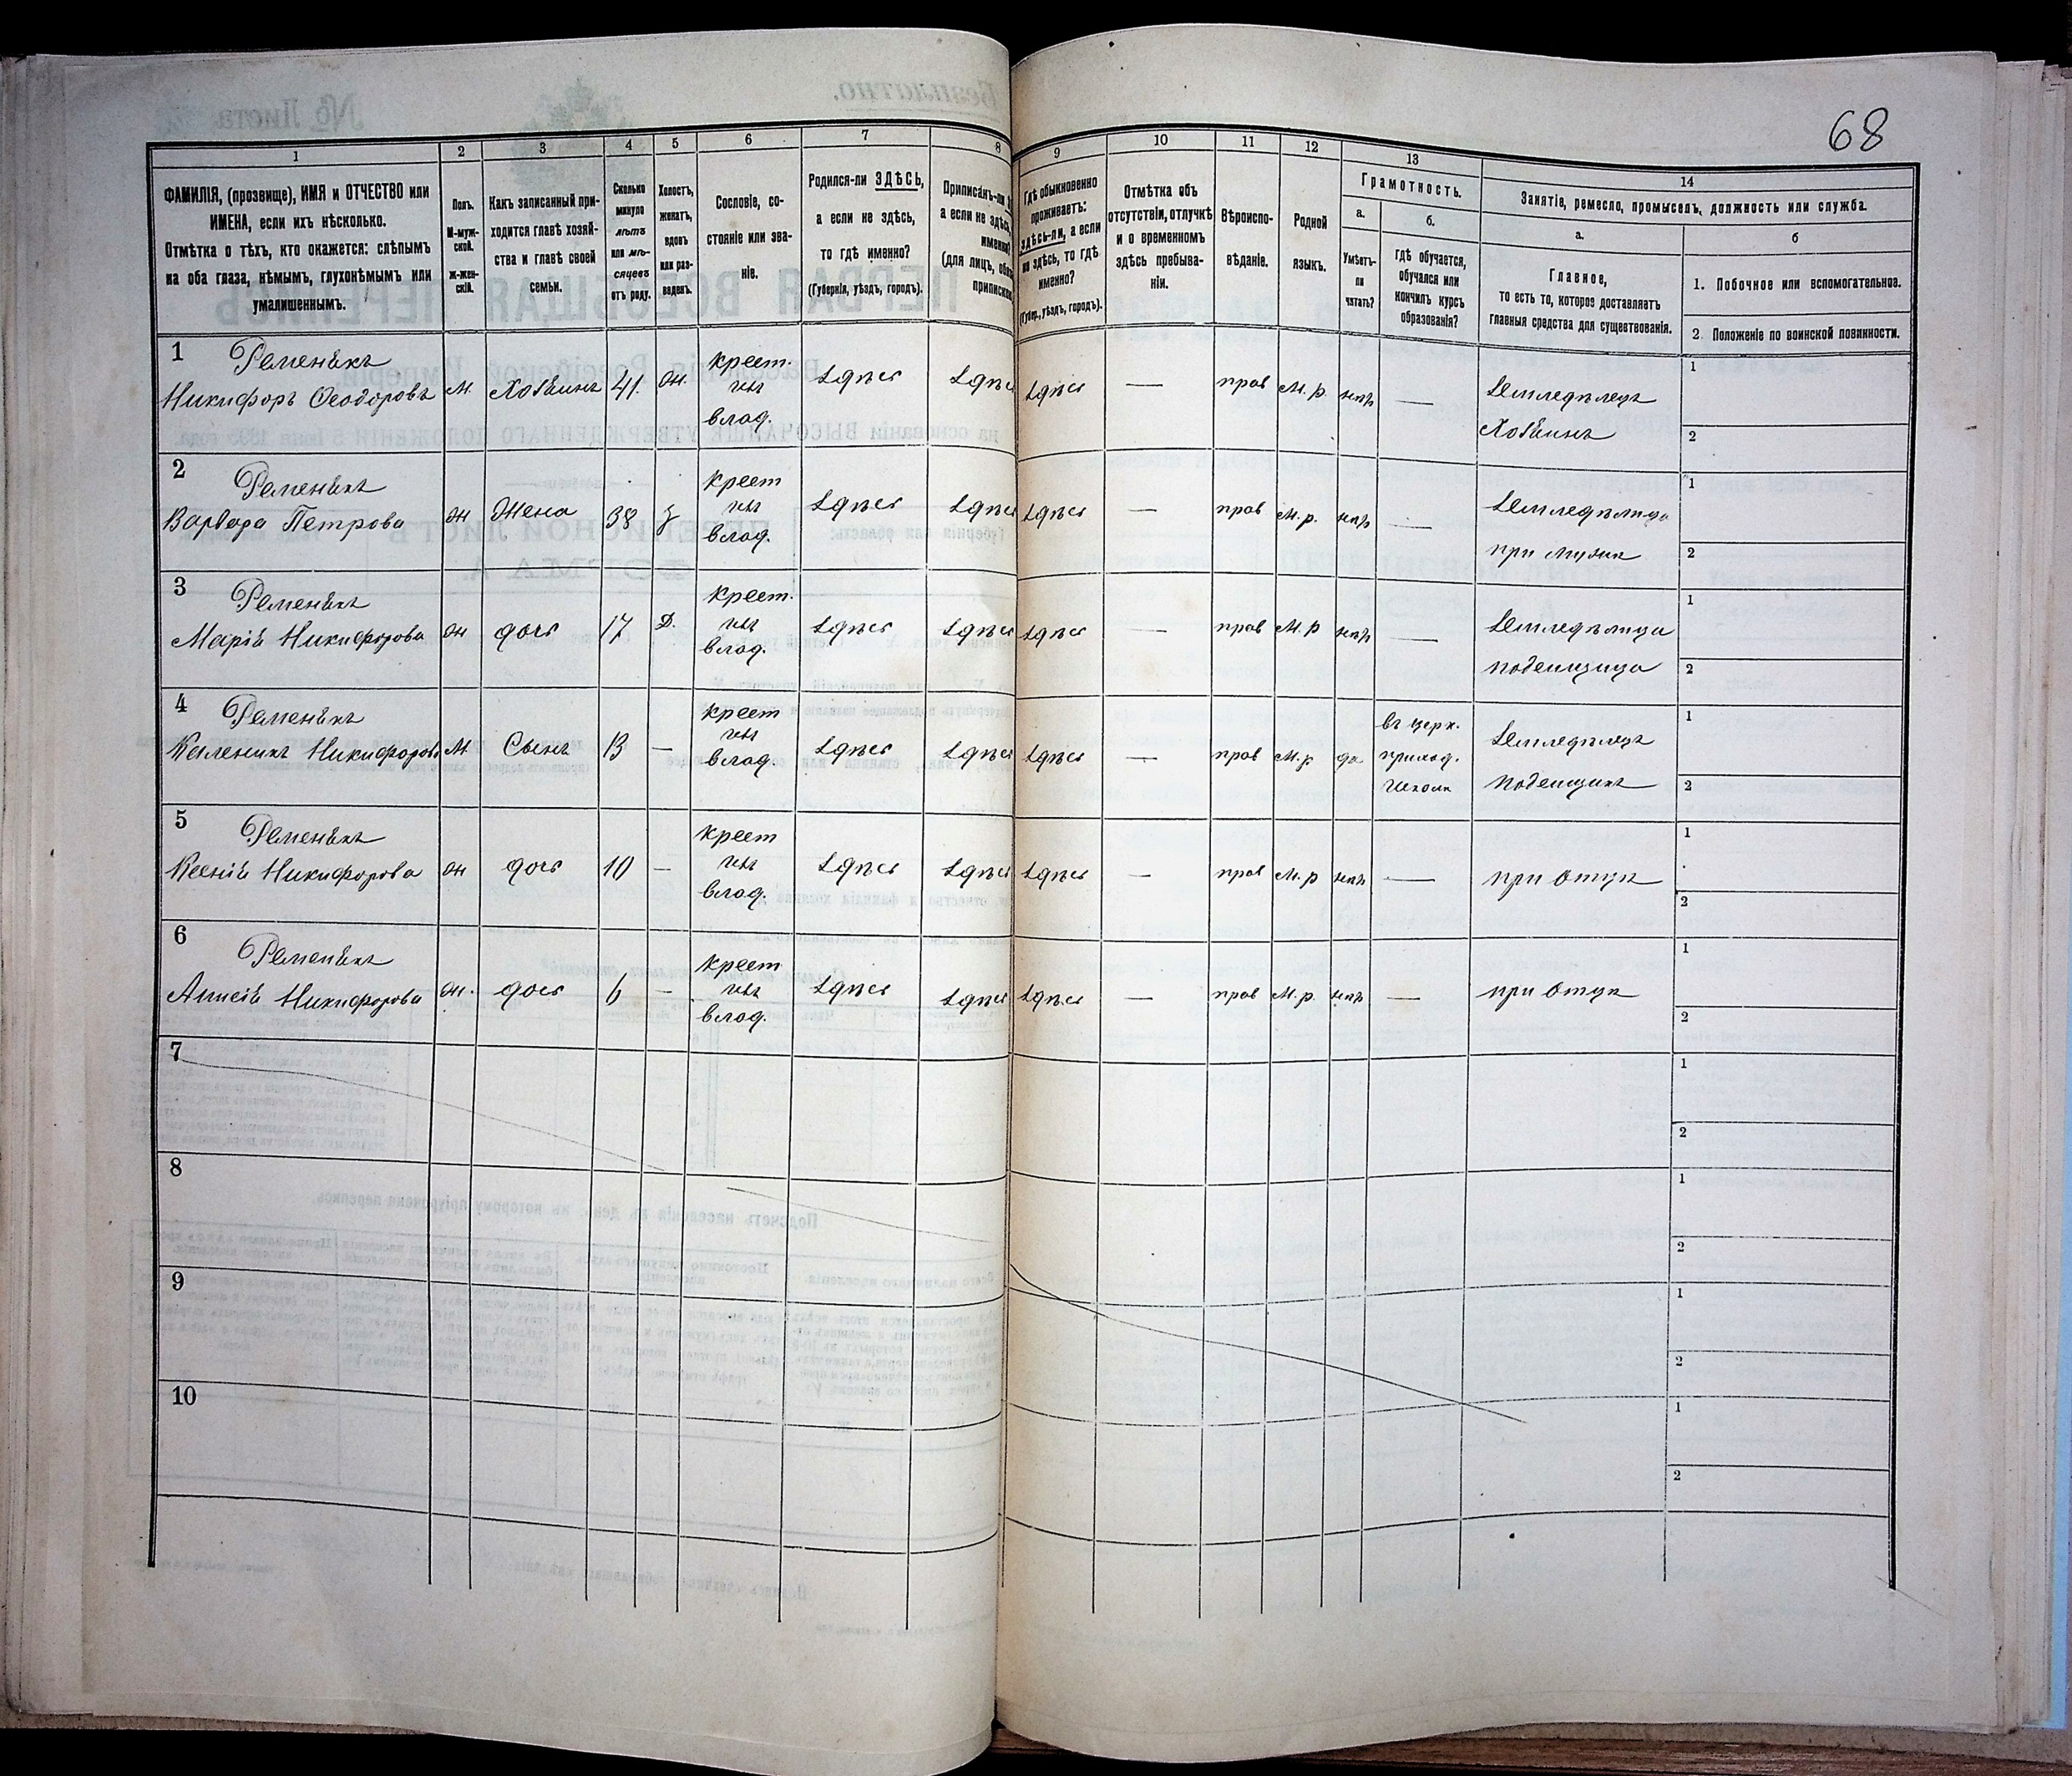 68
1
2
3
4
5
6
7
8
9
10
11
12
13
14
ФАМИЛІЯ, (прозвище), ИМЯ и ОТЧЕСТВО или
ИМЕНА, если ихъ нѣсколько.
Отмѣтка о тѣхъ, кто окажется: слѣпымъ
на оба глаза, нѣмымъ, глухонѣмымъ или
умалишеннымъ.
Полъ.
М-муж-
ской.
ж-жен-
скій.
Какъ записанный при-
ходится главѣ хозяй-
ства и главѣ своей
семьи.
Сколько
минуло
лѣтъ
или мѣ-
сяцевъ
отъ роду.
Холостъ,
женатъ,
вдовъ
или раз-
веденъ.
Сословіе, со-
стояніе или зва-
ніе.
Родился-ли ЗДѢСЬ,
а если не здѣсь,
то гдѣ именно?
(Губернія, уѣздъ, городъ).
Приписанъ-ли
а если не здѣсь,
именно?
(для лицъ,
Гдѣ обыкновенно
проживаетъ:
здѣсь-ли, а если
не здѣсь, то гдѣ
именно?
(Губер., уѣздъ, городъ).
Отмѣтка объ
отсутствіи, отлучкѣ
и о временномъ
здѣсь пребыва-
ніи.
Вѣроиспо-
вѣданіе.
Родной
языкъ.
Грамотность.
а.
б.
Умѣетъ-
ли
читать?
гдѣ обучается,
обучался или
кончилъ курсъ
образованія?
Занятіе, ремесло, промыселъ, должность или служба.
а.
б
Главное,
то есть то, которое доставляетъ
главныя средства для существованія.
1. Побочное или вспомогательное.
2. Положеніе по воинской повинности.
1 Ременѣкъ
Никифоръ Ѳеодоровъ М. Хозяинъ 41. ж. крест. изъ влад. здѣсь здѣсь здѣсь — прав М.р. нѣтъ — Земледѣлецъ
Хозяинъ 1 2
2 Ременѣкъ
Варвара Петрова ж Жена 38 з крест изъ влад. здѣсь здѣсь здѣсь — прав М.р. нѣтъ — Земледѣлица
при мужѣ 1 2
3 Ременѣкъ
Марія Никифорова ж дочь 17 Д. крест. изъ влад. здѣсь здѣсь здѣсь — прав М.р нѣтъ — Земледѣлица
поденщица 1 2
4 Ременѣкъ
Каленикъ Никифоровъ М Сынъ 13 — крест изъ влад. здѣсь здѣсь здѣсь — прав М.р да въ церк.
приход.
школѣ Земледѣлецъ
поденщикъ 1 2
5 Ременѣкъ
Ксенія Никифорова ж дочь 10 — крест изъ влад. здѣсь здѣсь здѣсь — прав М.р нѣтъ — при отцѣ 1 2
6 Ременѣкъ
Анисія Никифорова ж. дочь 6 — крест изъ влад. здѣсь здѣсь здѣсь — прав М.р. нѣтъ — при отцѣ 1 2
7 1 2
8 1 2
9 1 2
10 1 2